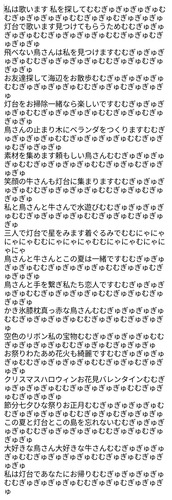 私は歌います 私を探してむむぎゅぎゅぎゅぎゅ
むむぎゅぎゅぎゅぎゅむむぎゅぎゅぎゅぎゅ
灯台で歌います見つけてもらうためむむぎゅぎ
ゅぎゅぎゅむむぎゅぎゅぎゅぎゅむむぎゅぎゅ
ぎゅぎゅ
飛べない鳥さんは私を見つけますむむぎゅぎゅ
ぎゅぎゅむむぎゅぎゅぎゅぎゅむむぎゅぎゅぎ
ゅぎゅ
お友達探して海辺をお散歩むむぎゅぎゅぎゅぎ
ゅむむぎゅぎゅぎゅぎゅむむぎゅぎゅぎゅぎゅ
灯台をお掃除一緒なら楽しいですむむぎゅぎゅ
ぎゅぎゅむむぎゅぎゅぎゅぎゅむむぎゅぎゅぎ
ゅぎゅ
鳥さんの止まり木にベランダをつくりますむむぎ
ゅぎゅぎゅぎゅむむぎゅぎゅぎゅぎゅむむぎゅ
ぎゅぎゅぎゅ
素材を集めます頼もしい鳥さんむむぎゅぎゅぎゅ
ぎゅむむぎゅぎゅぎゅぎゅむむぎゅぎゅぎゅぎ
ゅ
笑顔の牛さんも灯台に集まりますむむぎゅぎゅ
ぎゅぎゅむむぎゅぎゅぎゅぎゅむむぎゅぎゅぎ
ゅぎゅ
私と鳥さんと牛さんで水遊びむむぎゅぎゅぎゅ
ぎゅむむぎゅぎゅぎゅぎゅむむぎゅぎゅぎゅぎ
ゅ
三人で灯台で星をみます着ぐるみでむむにゃに
ゃにゃにゃむむにゃにゃにゃにゃむむにゃにゃ
にゃにゃ
鳥さんと牛さんとこの夏は一緒ですむむぎゅぎゅ
ぎゅぎゅむむぎゅぎゅぎゅぎゅむむぎゅぎゅぎ
ゅぎゅ
鳥さんと手を繋ぎ私たち恋人ですむむぎゅぎゅ
ぎゅぎゅむむぎゅぎゅぎゅぎゅむむぎゅぎゅぎ
ゅぎゅ
かき氷膝枕真っ赤な鳥さんむむぎゅぎゅぎゅぎ
ゅむむぎゅぎゅぎゅぎゅむむぎゅぎゅぎゅぎゅ
空色のリボン私の宝物むむぎゅぎゅぎゅぎゅむ
むぎゅぎゅぎゅぎゅむむぎゅぎゅぎゅぎゅ
お祭りわたあめ花火も綺麗ですむむぎゅぎゅぎ
ゅぎゅむむぎゅぎゅぎゅぎゅむむぎゅぎゅぎゅ
ぎゅ
クリスマスハロウィンお花見バレンタインむむぎ
ゅぎゅぎゅぎゅむむぎゅぎゅぎゅぎゅむむぎゅ
ぎゅぎゅぎゅ
節分七夕ひな祭りお正月むむぎゅぎゅぎゅぎゅ
むむぎゅぎゅぎゅぎゅむむぎゅぎゅぎゅぎゅ
この夏と灯台とこの島を忘れないむむぎゅぎゅ
ぎゅぎゅむむぎゅぎゅぎゅぎゅむむぎゅぎゅぎ
ゅぎゅ
大好きな鳥さん大好きな牛さんむむぎゅぎゅぎ
ゅぎゅむむぎゅぎゅぎゅぎゅむむぎゅぎゅぎゅ
ぎゅ
私は灯台であなたにお帰りむむぎゅぎゅぎゅぎ
ゅむむぎゅぎゅぎゅぎゅむむぎゅぎゅぎゅぎゅ